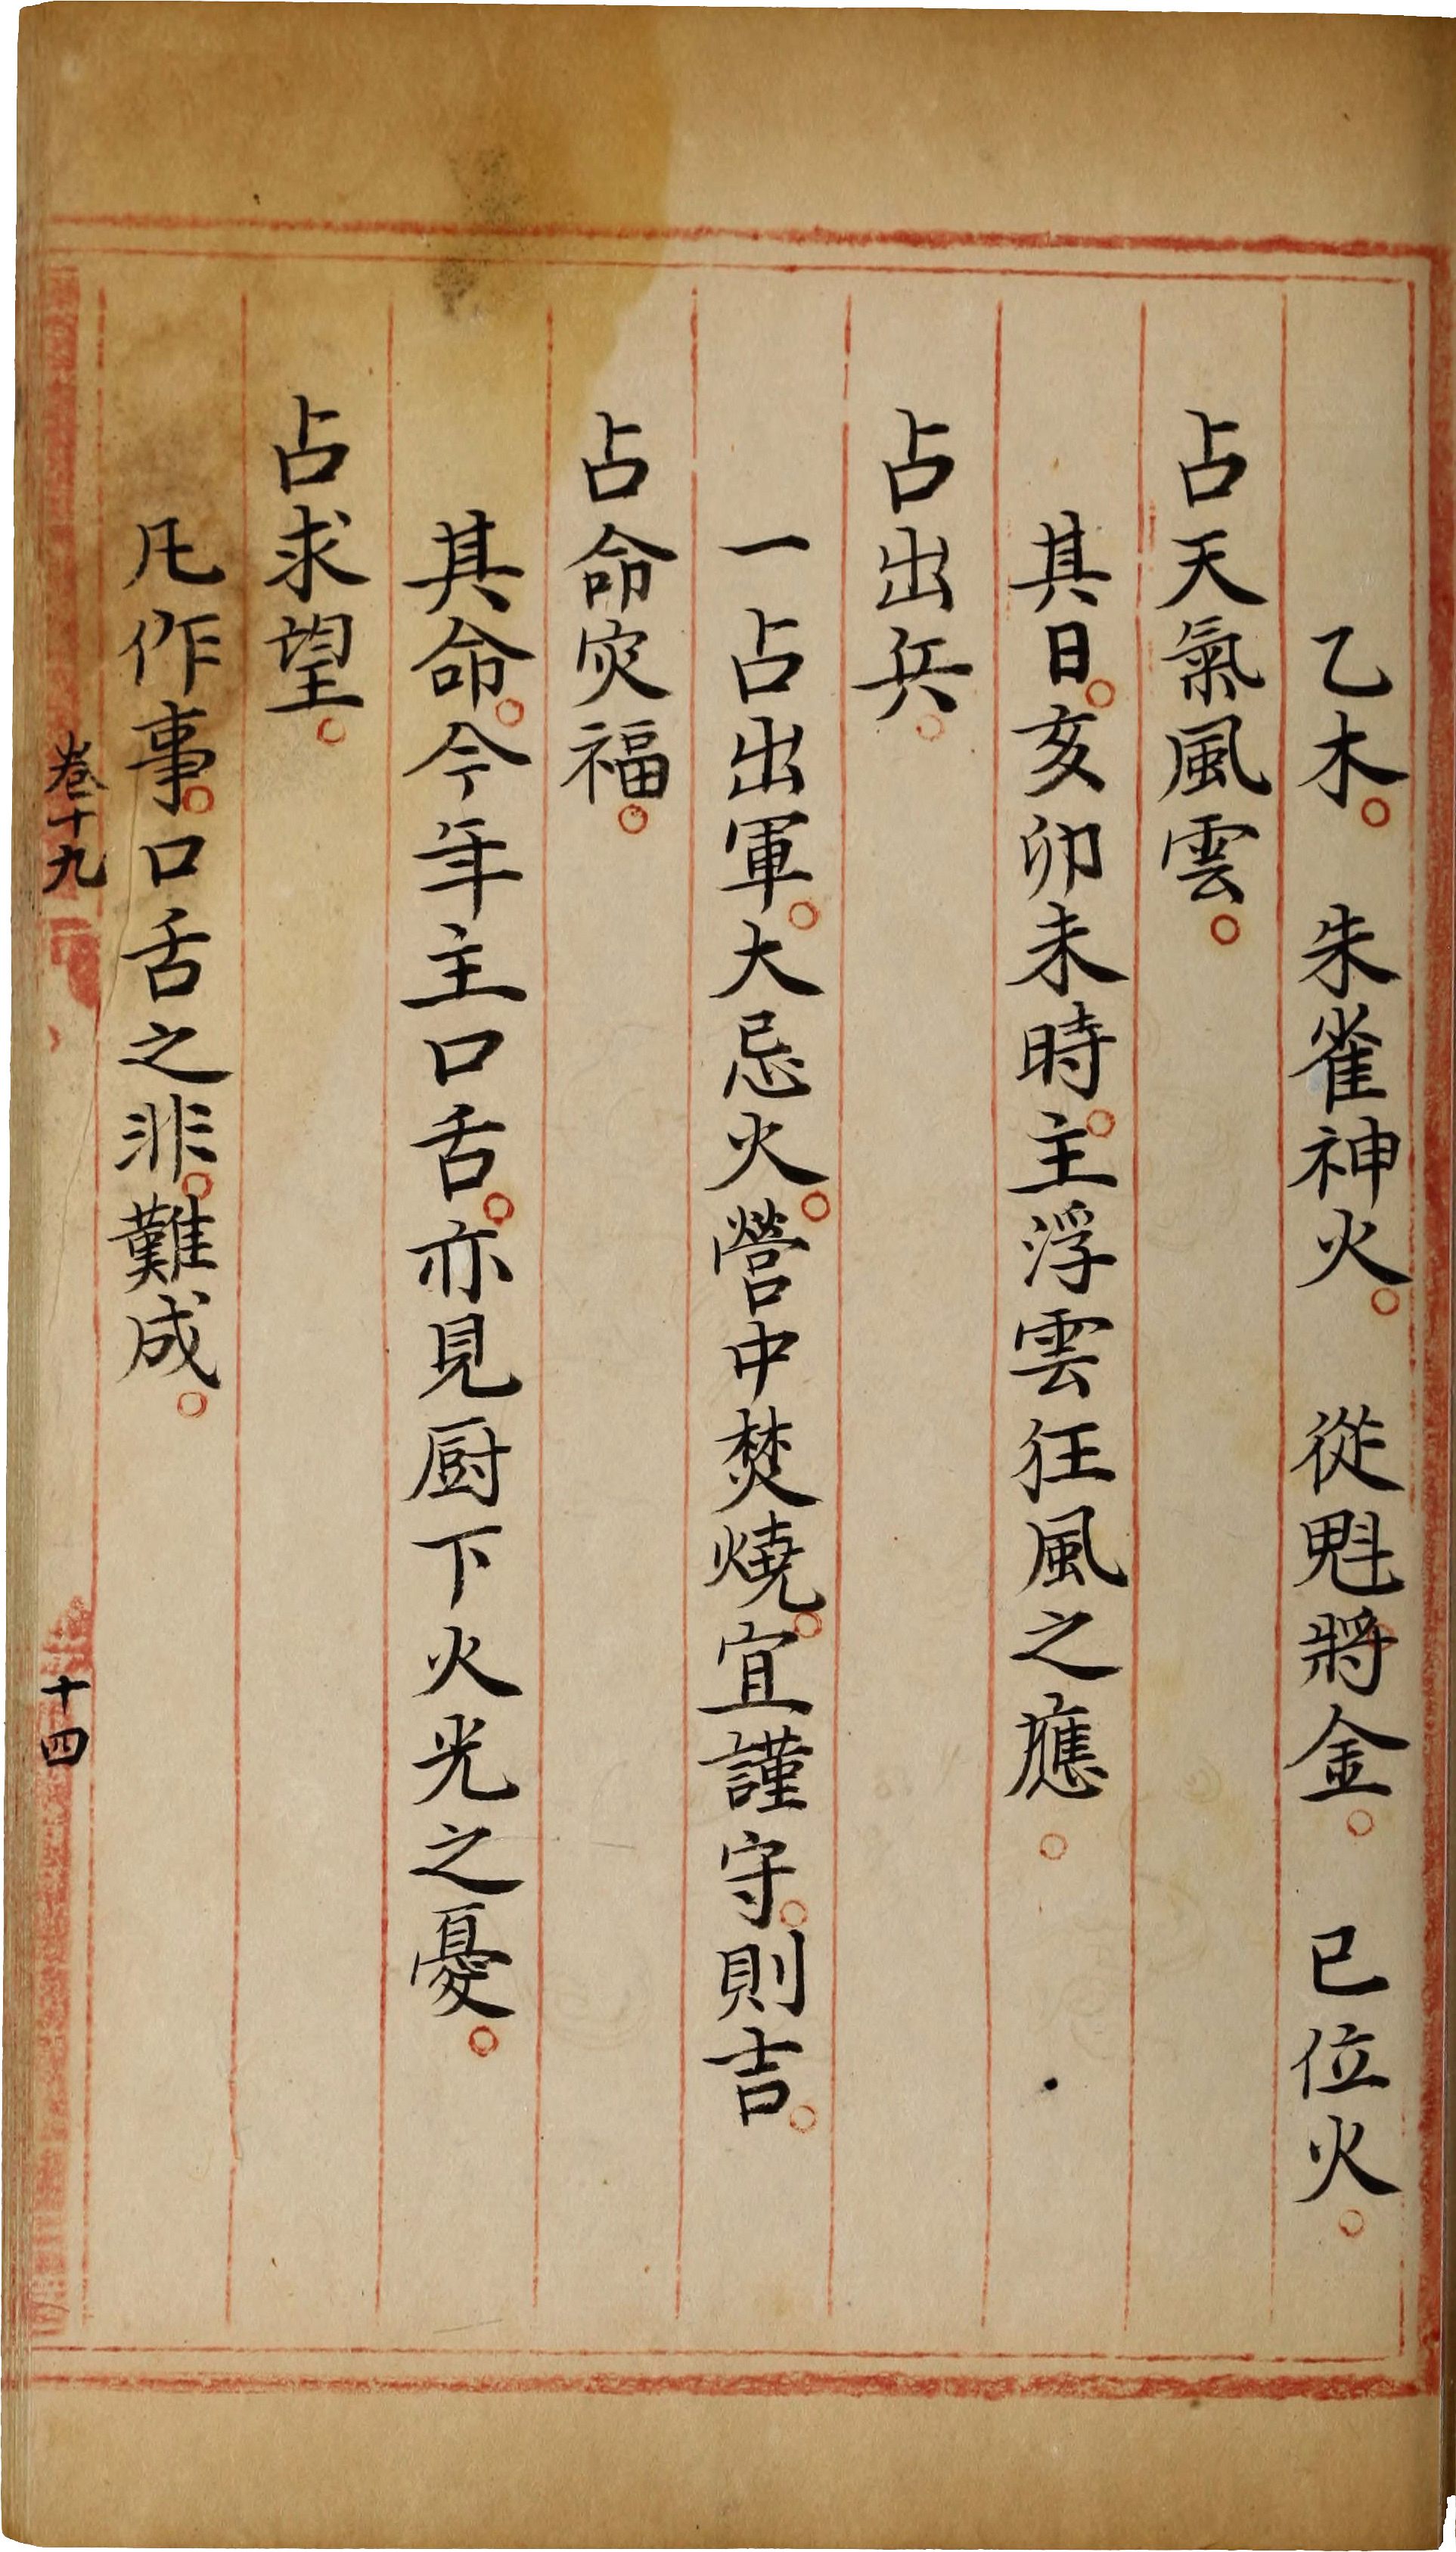 乙木。　朱雀神火。　從魁將金。　巳位火。
占天氣風雲。
其日。亥卯未時。主浮雲狂風之應。
占出兵。
一占出軍。大忌火。營中焚燒。宜謹守。則吉。
占命灾福。
其命。今年主口舌。亦見厨下火光之憂。
占求望。
凡作事。口舌之非。難成。
卷十九
十四